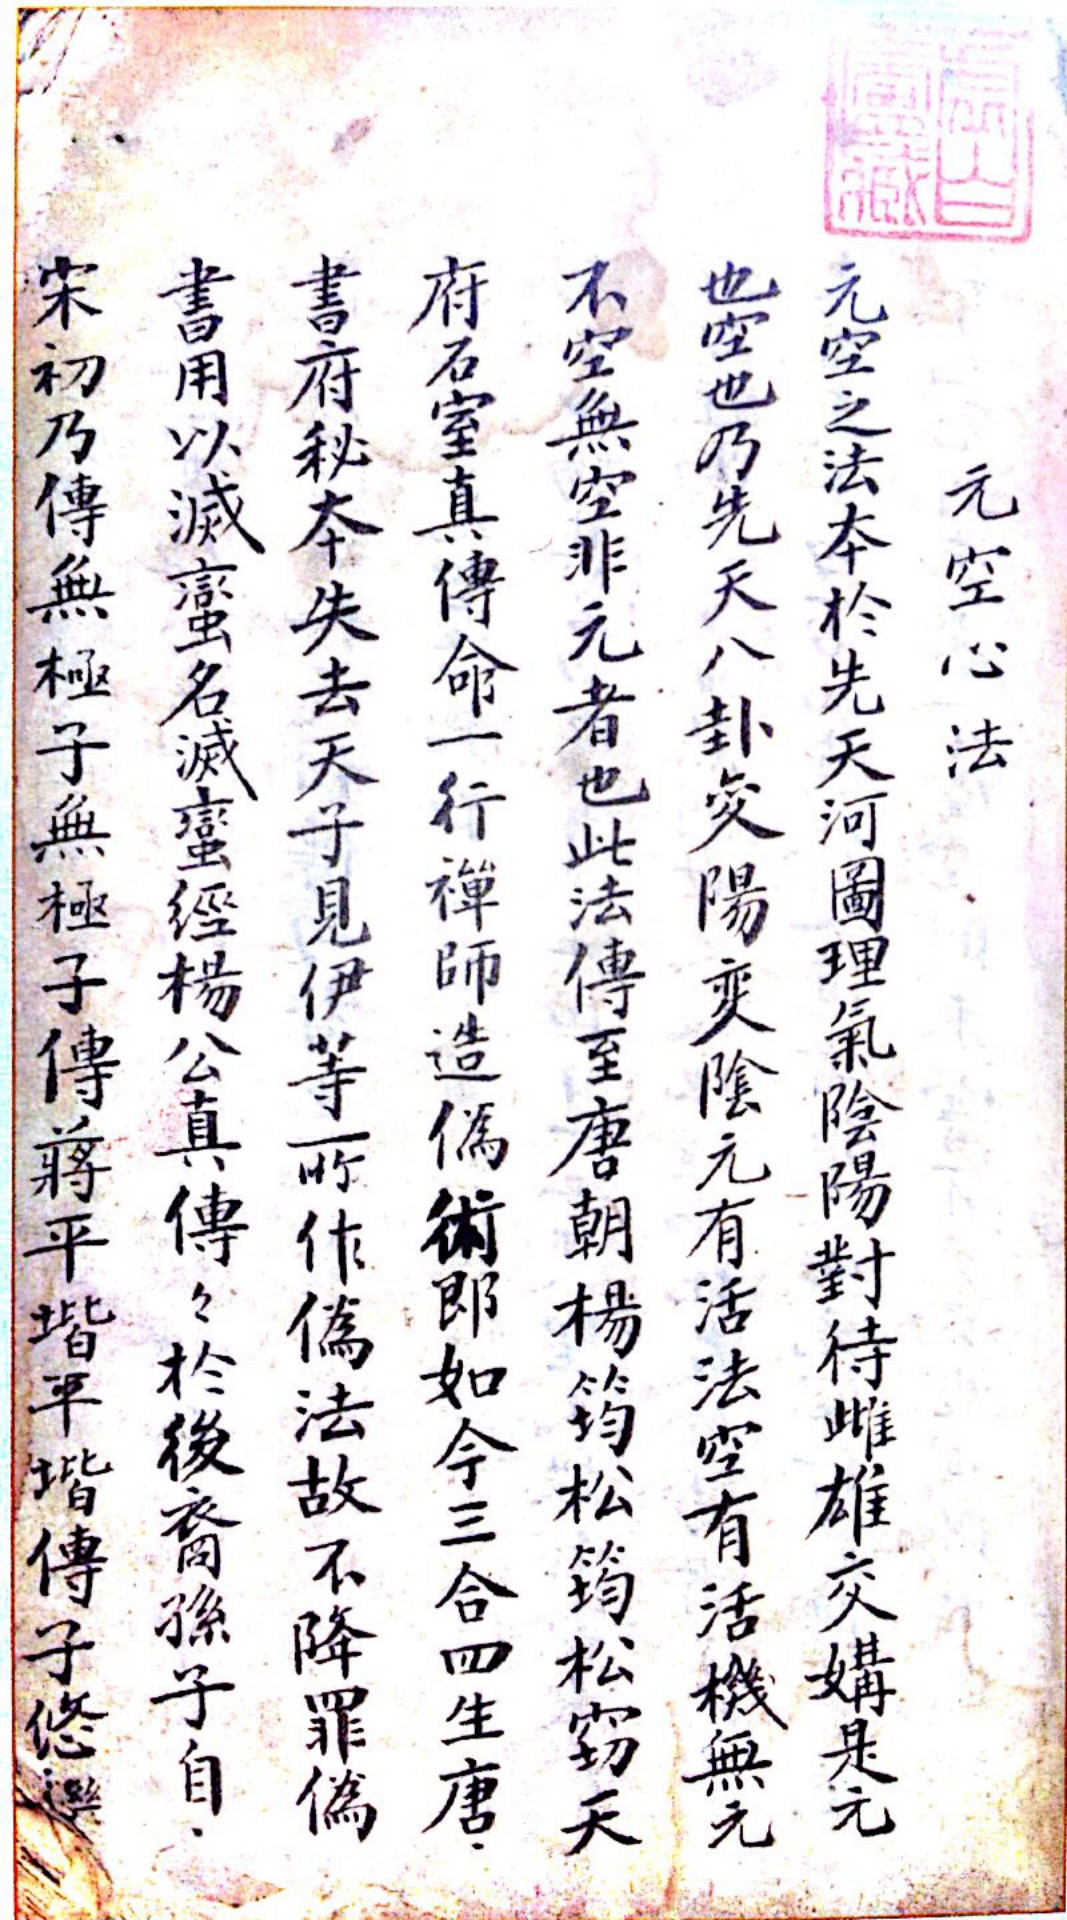 元空心法
元空之法本於先天河圖理氣陰陽對待雌雄交媾是元
也空也乃先天八卦交陽变陰元有活法空有活機無元
不空無空非元者也此法傳至唐朝楊筠松筠松窃天
府石室真傳命一行禅師造偽術即如今三合四生唐
書府秘本失去天子見伊等所作偽法故不降罪偽
書用以滅蛮名滅蛮經楊公真傳々於後裔孫子自
宋初乃傳無極子無極子傳蔣平堦平堦傳子悠